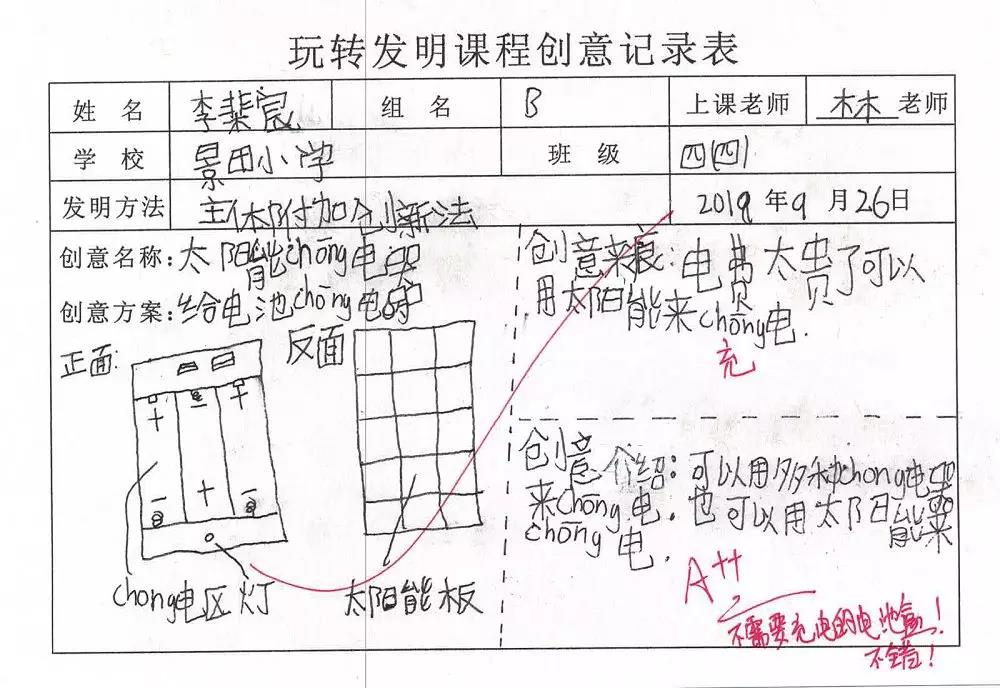 玩转发明课程创意记录表
姓名 李棐宸 组名 B 上课老师 林 老师
学校 景田小学 班级 四(四)
发明方法 主体附加创新法 2019 年 9 月 26 日
创意名称:太阳能chōng电器
创意方案:给电池chong电的
正面:
反面
+ +
+
chong电区 灯
太阳能板
创意来痕:电费太贵了可以
用太阳能来chōng电.
充
创意介绍:可以用多种chong电器
来Chōng电.也可以用太阳能来
chōng电.
A++
不需要充电的电池盒!
不错!